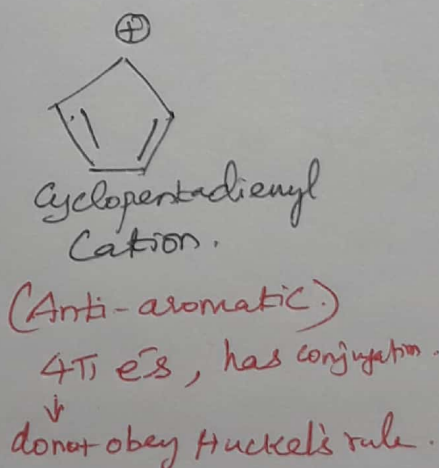 ⊕
Cyclopentadienyl
Cation.
(Anti-aromatic.)
4π e⁻s, has conjugation.
↓
donot obey Huckel's rule.